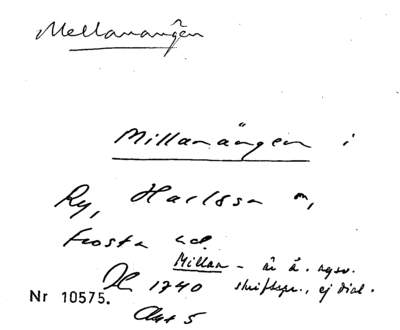 Mellanängen
Millanängen i
Ry, Harlösa sn,
Frosta hd.
Millan- är ä. nysv.
1740 skriftspr., ej dial.
Nr 10575.
Akt 5